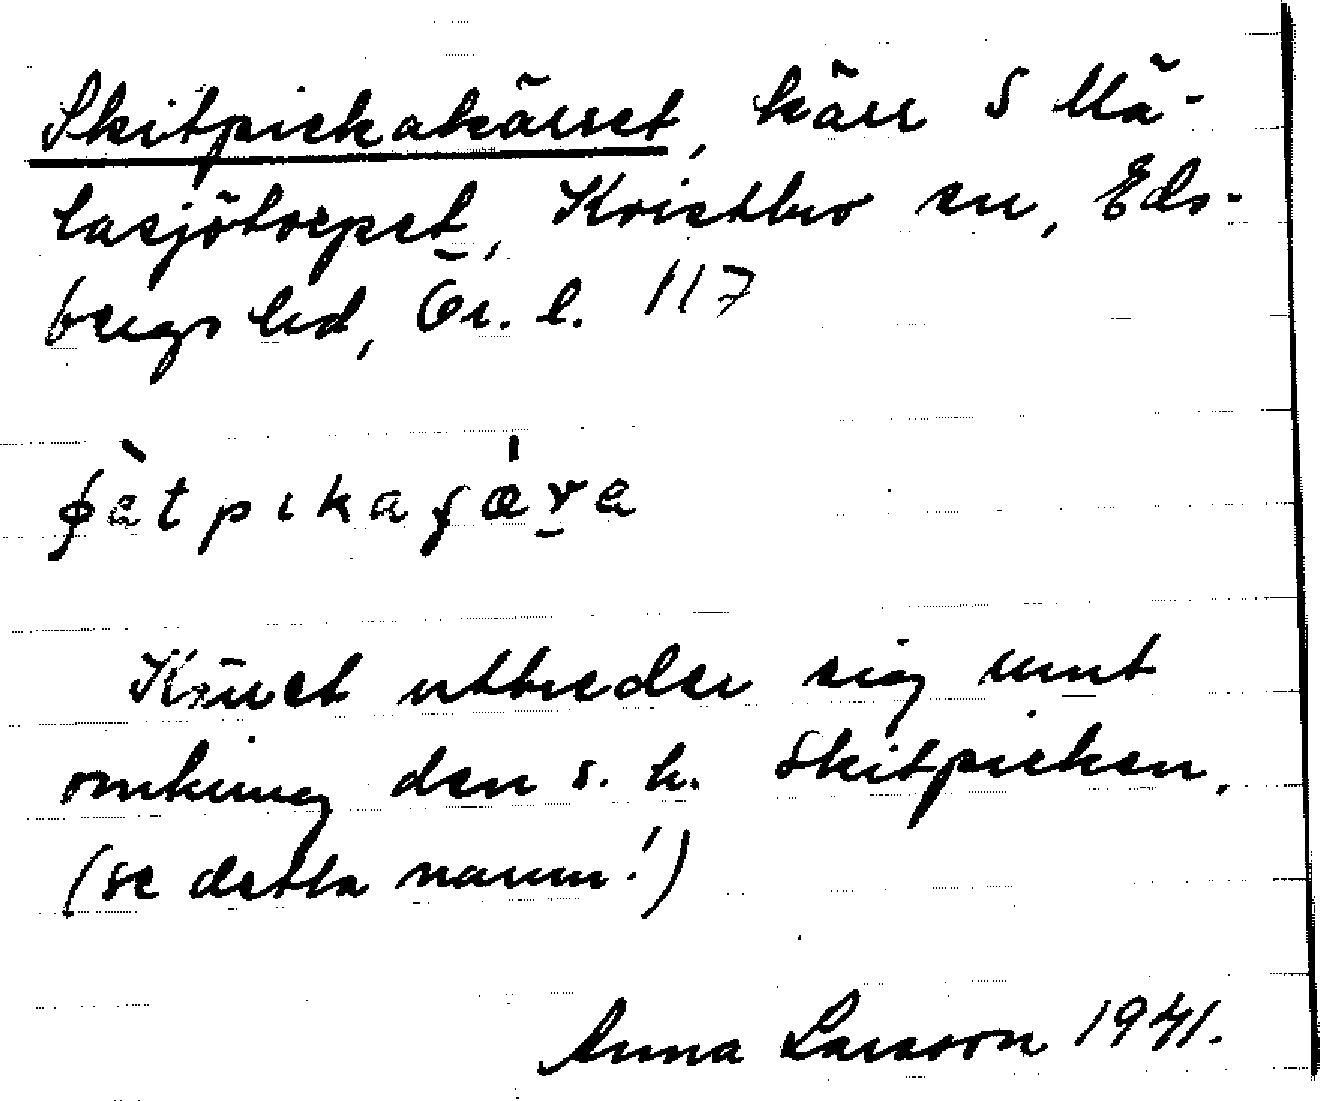 Skitpickakärret, kärr S Må-
lasjötorpet, Kvistbro sn, Eds-
bergs hd, Ör. l. 117
Kärret utbreder sig runt
omkring den s. k. Skitpicken,
(se detta namn!)
Anna Larsson 1941.